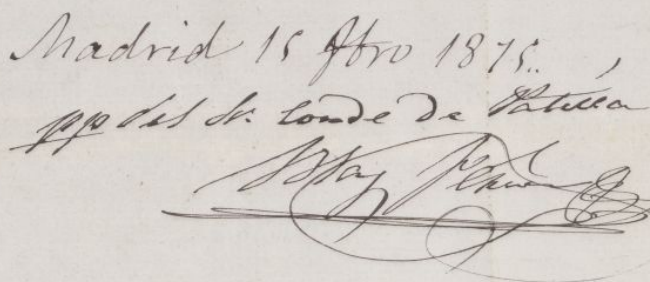 Madrid 15 fbro 1875.
pp del Sr. Conde de Patilla